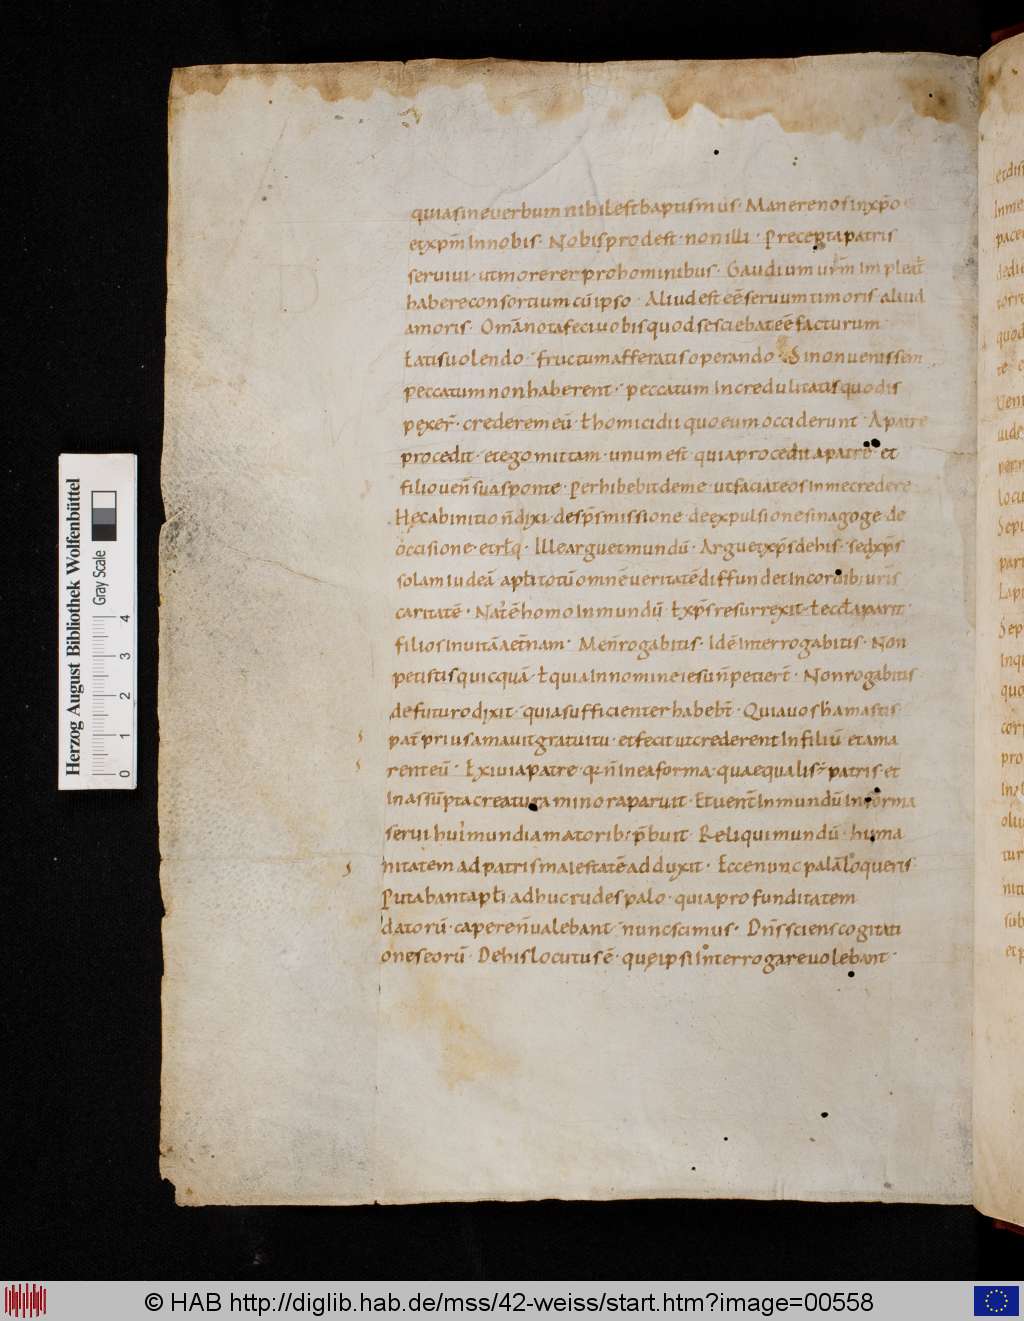 quia sine verbum nihil est baptismus · Manere nos in xp̄o
et xpm̄ In nobis · Nobis prodest · non illi · Precepta patris
servivi · ut morerer pro hominibus · Gaudium ur̄m Impleat̄
habere consortium cū ipso · Aliud est eē servum timoris aliud
amoris · Om̄a nota feci vobis quod se sciebat eē facturum
ł atis volendo · fructum afferatis operando · Si non venissem
peccatum non haberent · peccatum Incredulitatis quod is
pęxer̄ · crederem eū · ł homicidii quo eum occiderunt · A patre
procedit · et ego mittam · unum est quia procedit a patre et
filio ven̄ sua sponte · Perhibebit de me · ut faciat eos In me credere
Hęc ab initio n̄ dixi · de sp̄s missione de expulsione sinagoge de
occisione · et rłq · Ille arguet mundū · Arguet xp̄s de his · sed xp̄s
solam Iudeā apłi totū omnē veritatē diffundet In cordib; uris
caritatē · Nat̄ ē homo In mundū ł xp̄s resurrexit · ł eccła parit
filios In vitā aet̄nam · Me n̄ rogabitis · Idē Interrogabitis · Non
petistis quicquā · ł quia In nomine iesu n̄ petier̄t · Non rogabitis
de futuro dixit · quia sufficienter habeb̄t · Quia vos h amastis
pat̄ prius amavit gratuitu · et fecit ut crederent In filiū et ama
rent eū · Exivi a patre · qn̄ In ea forma · quae equalis patris et
In assūpta creatura minor aparuit · Et uen̄t In mundū In forma
servi hui mundi amatorib; p̄buit · Reliqui mundū · huma
nitatem ad patris maiestatē adduxit · Ecce nunc palā loqueris
Putabant apłi adhuc rudes palo · quia profunditatem
datorū · capere n̄ valebant nunc scimus · Dn̄s sciens cogitati
ones eorū · De his locutus ē · quę ipsi Interrogare volebant ·
et dis
In me
pace
dedi
torre
quod
te
veni
uide
locu
Sepi
part
Lapi
Sep
Inqu
quo
corr
pro
oliv
tur
nitu
sub
et p
Herzog August Bibliothek Wolfenbüttel
Gray Scale
0 1 2 3 4
© HAB http://diglib.hab.de/mss/42-weiss/start.htm?image=00558